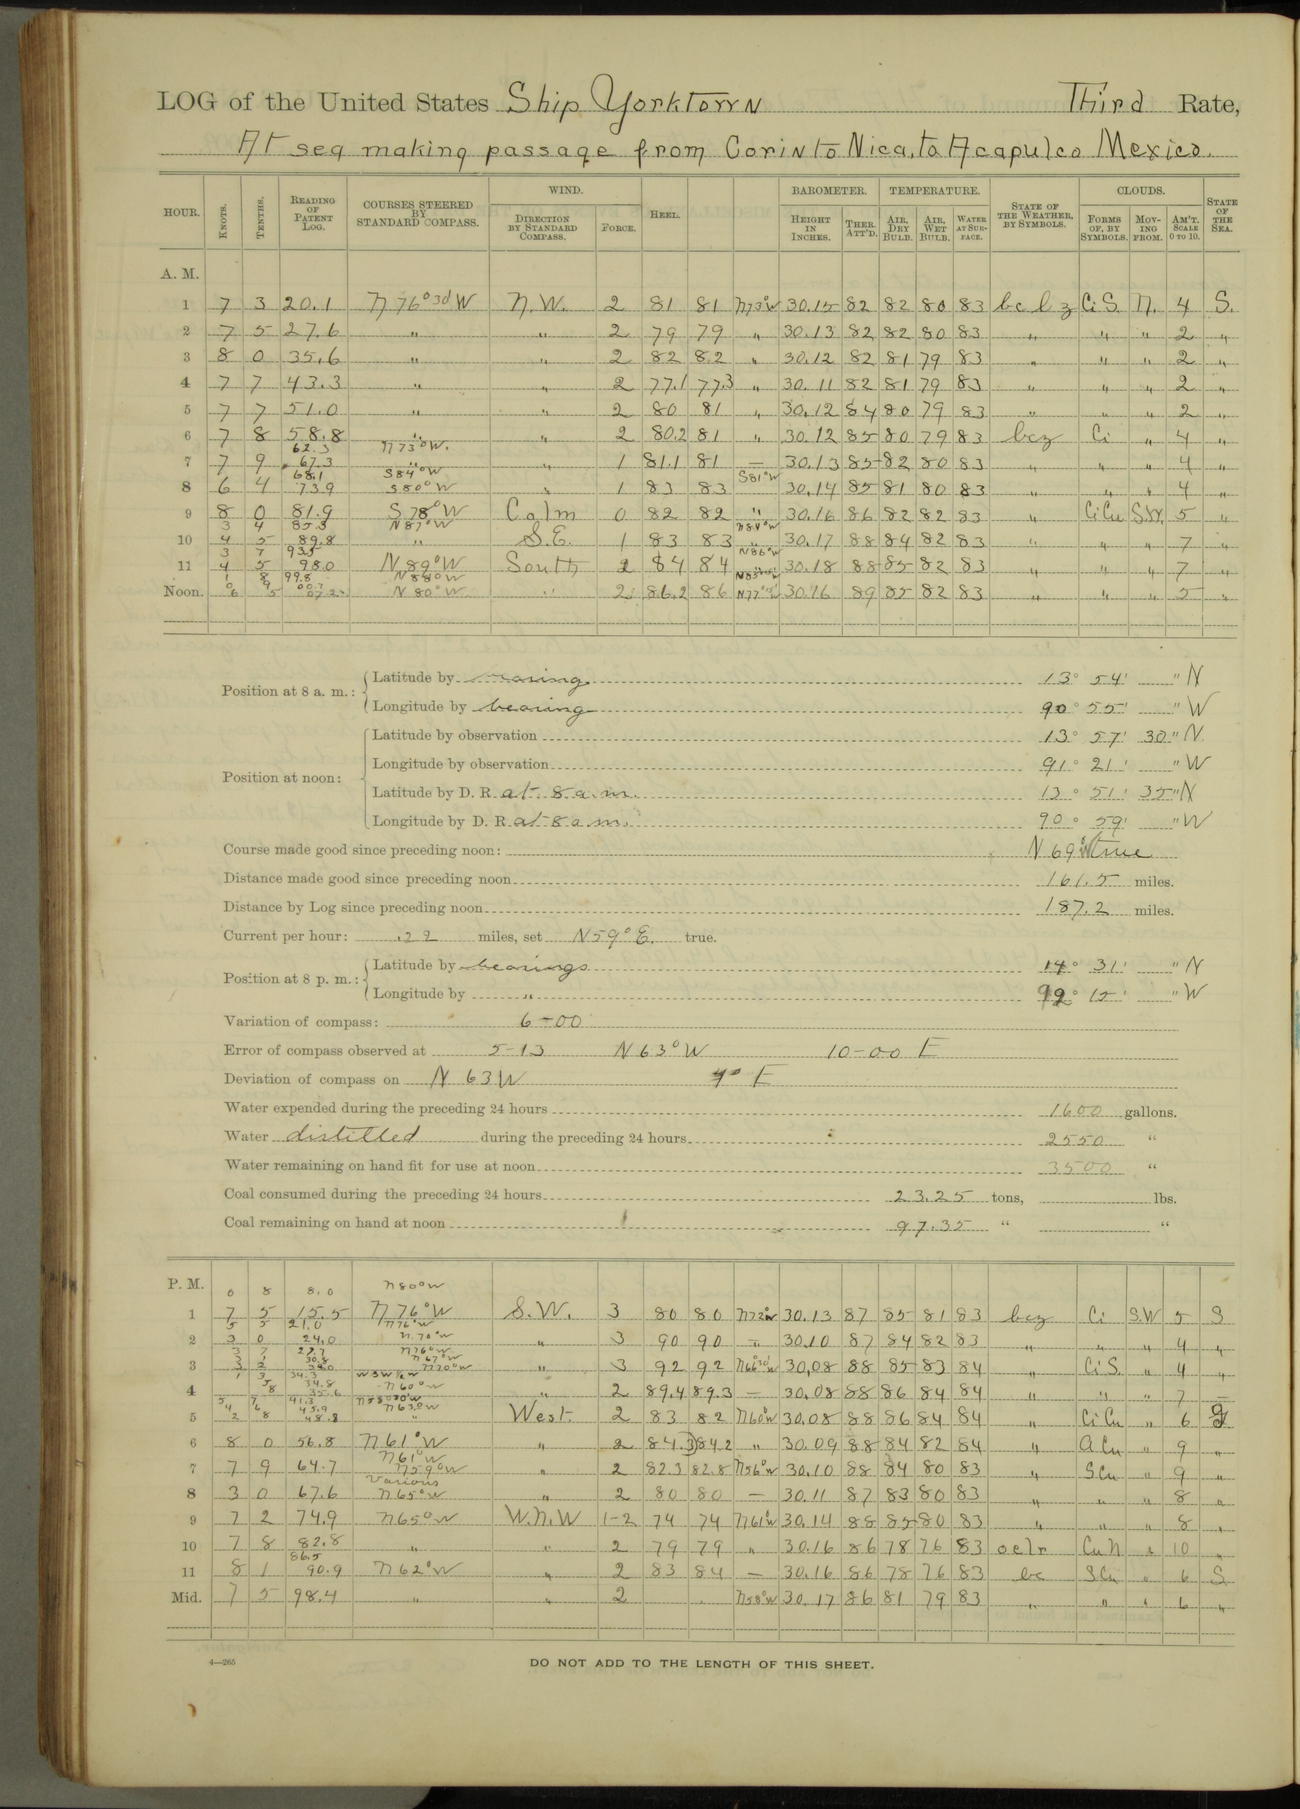 LOG of the United States Ship Yorktown Third Rate,
At sea making passage from Corinto Nica, to Acapulco Mexico.
HOUR. KNOTS. TENTHS. READING OF PATENT LOG. COURSES STEERED BY STANDARD COMPASS. WIND. DIRECTION BY STANDARD COMPASS. FORCE. HEEL. BAROMETER. HEIGHT IN INCHES. THER. ATT'D. TEMPERATURE. AIR, DRY BULB. AIR, WET BULB. WATER AT SURFACE. STATE OF THE WEATHER, BY SYMBOLS. CLOUDS. FORMS OF, BY SYMBOLS. MOVING FROM. AM'T. SCALE 0 TO 10. STATE OF THE SEA.
A. M.
1 7 3 20.1 N 76° 30' W N.W. 2 81 81 N73°W 30.15 82 82 80 83 Ci S. N. 4 S.
2 7 5 27.6 " " 2 79 79 " 30.13 82 82 80 83 " " " 2 "
3 8 0 35.6 " " 2 82 82 " 30.12 82 81 79 83 " " " 2 "
4 7 7 43.3 " " 2 77.1 77.3 " 30.11 82 81 79 83 " " " 2 "
5 7 7 51.0 " " 2 80 81 " 30.12 84 80 79 83 " " " 2 "
6 7 8 58.8 " " 2 80.2 81 " 30.12 85 80 79 83 bcz Ci " 4 "
62.3 N 73° W.
7 7 9 67.3 " " 1 81.1 81 — 30.13 85 82 80 83 " " " 4 "
68.1 S 84° W S81°W
8 6 4 73.9 S 80° W " 1 83 83 30.14 85 81 80 83 " " " 4 "
9 8 0 81.9 S 78° W Calm 0 82 82 " 30.16 86 82 82 83 " Ci Cu S.W. 5 "
3 4 85.3 N 87° W
10 4 5 89.8 " S.E. 1 83 83 " 30.17 88 84 82 83 " " " 7 "
3 7 93.5 N86°W
11 4 5 98.0 N 89° W South 84 84 30.18 88 85 82 83 " " " 7 "
1 8 99.8 N 88° W
Noon. 6 5 07.2 N 80° W " 2 86.2 86 30.16 89 85 82 83 " " " 5 "
Position at 8 a. m.: Latitude by bearing 13° 54' " N
Longitude by bearing 90° 55' " W
Position at noon: Latitude by observation 13° 57' 30" N
Longitude by observation 91° 21' " W
Latitude by D. R. at 8 a.m. 13° 51' 35" N
Longitude by D. R. at 8 a m. 90° 59' " W
Course made good since preceding noon: N 69° W true
Distance made good since preceding noon 161.5 miles.
Distance by Log since preceding noon 187.2 miles.
Current per hour: .22 miles, set N 59° E. true.
Position at 8 p. m.: Latitude by bearings 14° 31' " N
Longitude by " 92° 15' " W
Variation of compass: 6-00
Error of compass observed at 5-13 N 63° W 10-00 E
Deviation of compass on N 63 W 4° E
Water expended during the preceding 24 hours 1600 gallons.
Water distilled during the preceding 24 hours 2550 "
Water remaining on hand fit for use at noon 3500 "
Coal consumed during the preceding 24 hours 23.25 tons, lbs.
Coal remaining on hand at noon 97.35 " "
P. M. 0 8 8.0 N 80° W
1 7 5 15.5 N 76° W S.W. 3 80 80 N72°W 30.13 87 85 81 83 bcz Ci S.W 5 S
5 5 21.0 N 76° W
2 3 0 24.0 N. 70° W " 3 90 90 " 30.10 87 84 82 83 " " " 4 "
3 7 27.7 N 76° W
3 3 2 N 70° W " 3 92 92 30.08 88 85 83 84 " Ci S. " 4 "
1 3 34.3 W S W ½ W
4 8 35.6 N 60° W " 2 89.4 89.3 — 30.08 88 86 84 84 " " " 7
5 2 8 48.8 " West. 2 83 82 N60°W 30.08 88 86 84 84 " Ci Cu " 6
6 8 0 56.8 N 61° W " 2 84.3 84.2 " 30.09 88 84 82 84 " a Cu " 9 "
N 61° W
7 7 9 64.7 N 59° W " 2 82.3 82.8 N56°W 30.10 88 84 80 83 " S Cu " 9 "
Various
8 3 0 67.6 N 65° W " 2 80 80 — 30.11 87 83 80 83 " " " 8 "
9 7 2 74.9 N 65° W W.N.W 1-2 74 74 N61°W 30.14 88 85 80 83 " " " 8 "
10 7 8 82.8 " " 2 79 79 " 30.16 86 78 76 83 oclr Cu N " 10 "
86.5
11 8 1 90.9 N 62° W " 2 83 84 — 30.16 86 78 76 83 bc S Cu " 6 S
Mid. 7 5 98.4 " " 2 N58°W 30.17 86 81 79 83 " " " 6 "
4—265
DO NOT ADD TO THE LENGTH OF THIS SHEET.